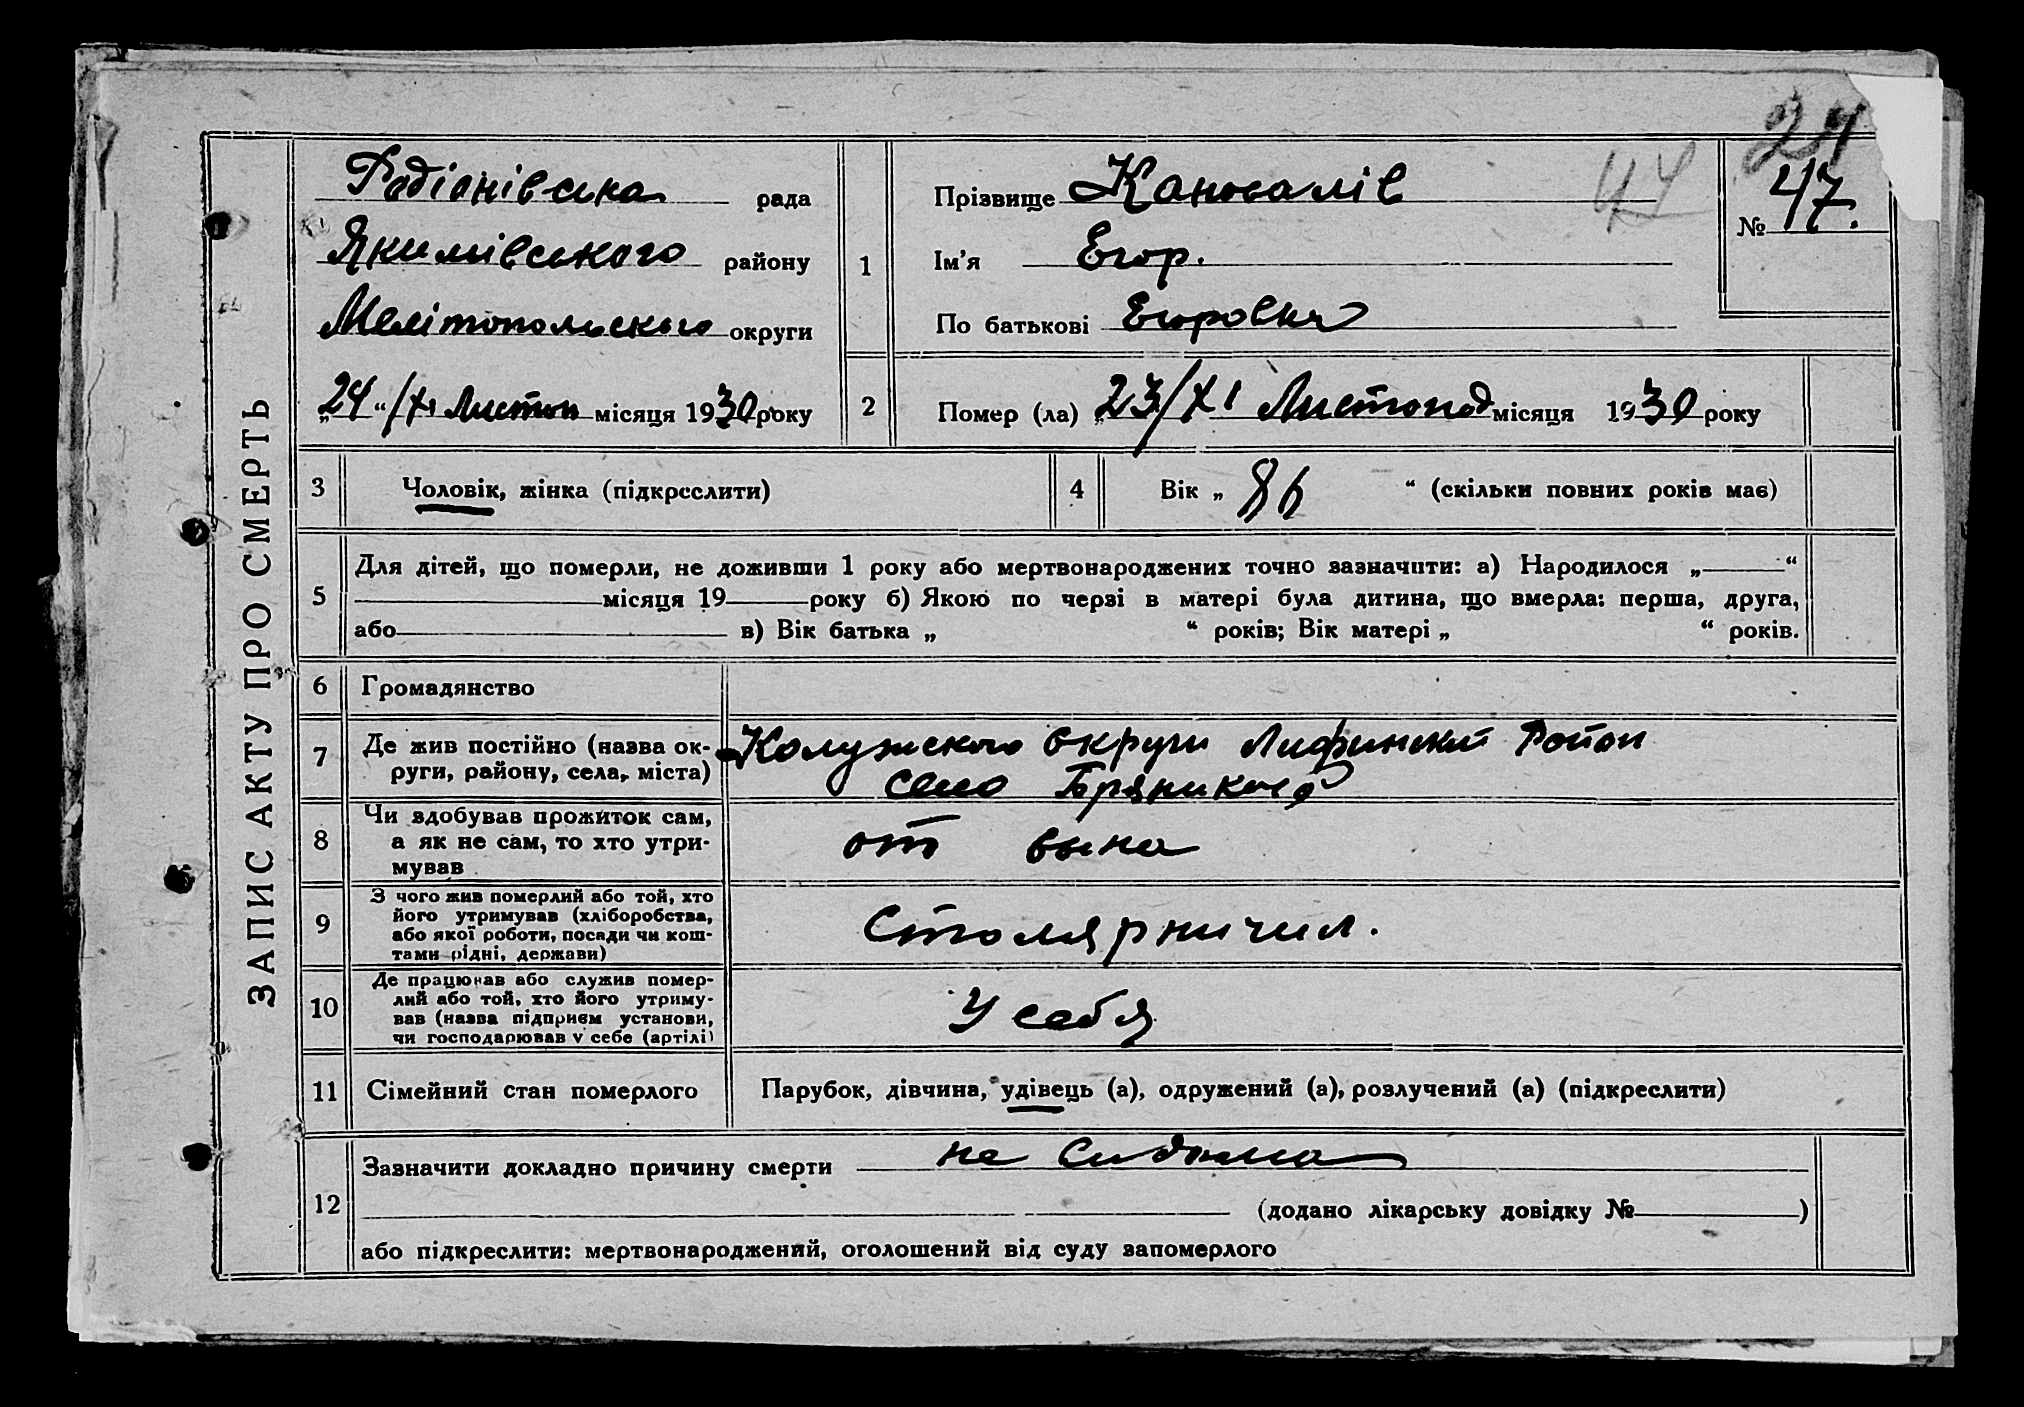 24
47.
47
№
ЗАПИС АКТУ ПРО СМЕРТЬ
Родіонівська рада
Якимівського району
Мелітопольського округи
„24“/XI Листоп місяця 1930 року
1
Прізвище Каносалів
Ім’я Егор.
По батькові Егорович
2
Помер (ла) „23/XI Листопод місяця 1930 року
3
Чоловік, жінка (підкреслити)
4
Вік „ 86 “ (скільки повних років має)
5
Для дітей, що померли, не доживши 1 року або мертвонароджених точно зазначити: а) Народилося „ “
місяця 19 року б) Якою по черзі в матері була дитина, що вмерла: перша, друга,
або в) Вік батька „ “ років; Вік матері „ “ років.
6
Громадянство
7
Де жив постійно (назва ок-
руги, району, села, міста)
Колужского округи Район
село
8
Чи здобував прожиток сам,
а як не сам, то хто утри-
мував
от сына
9
З чого жив померлий або той, хто
його утримував (хліборобства,
або якої роботи, посади чи кош-
тами рідні, держави)
Столярничил.
10
Де працював або служив помер-
лий або той, хто його утриму-
вав (назва підприєм установи,
чи господарював у себе (артілі)
У себя
11
Сімейний стан померлого
Парубок, дівчина, удівець (а), одружений (а), розлучений (а) (підкреслити)
12
Зазначити докладно причину смерти не
(додано лікарську довідку № )
або підкреслити: мертвонароджений, оголошений від суду запомерлого